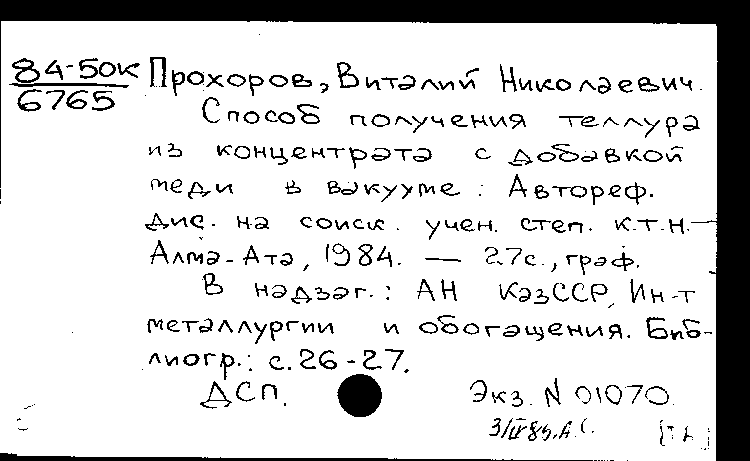 84-50К Прохоров, Виталий Николаевич.
6765
Способ получения теллура
из концентрата с добавкой
меди в вакууме : Автореф.
дис. на соиск. учен. степ. к.т.н.—
Алма-Ата, 1984. — 27с., граф.
В надзаг.: АН КазССР, Ин-т
металлургии и обогащения. Биб-
лиогр.: с.26-27.
ДСП. Экз. N 01070.